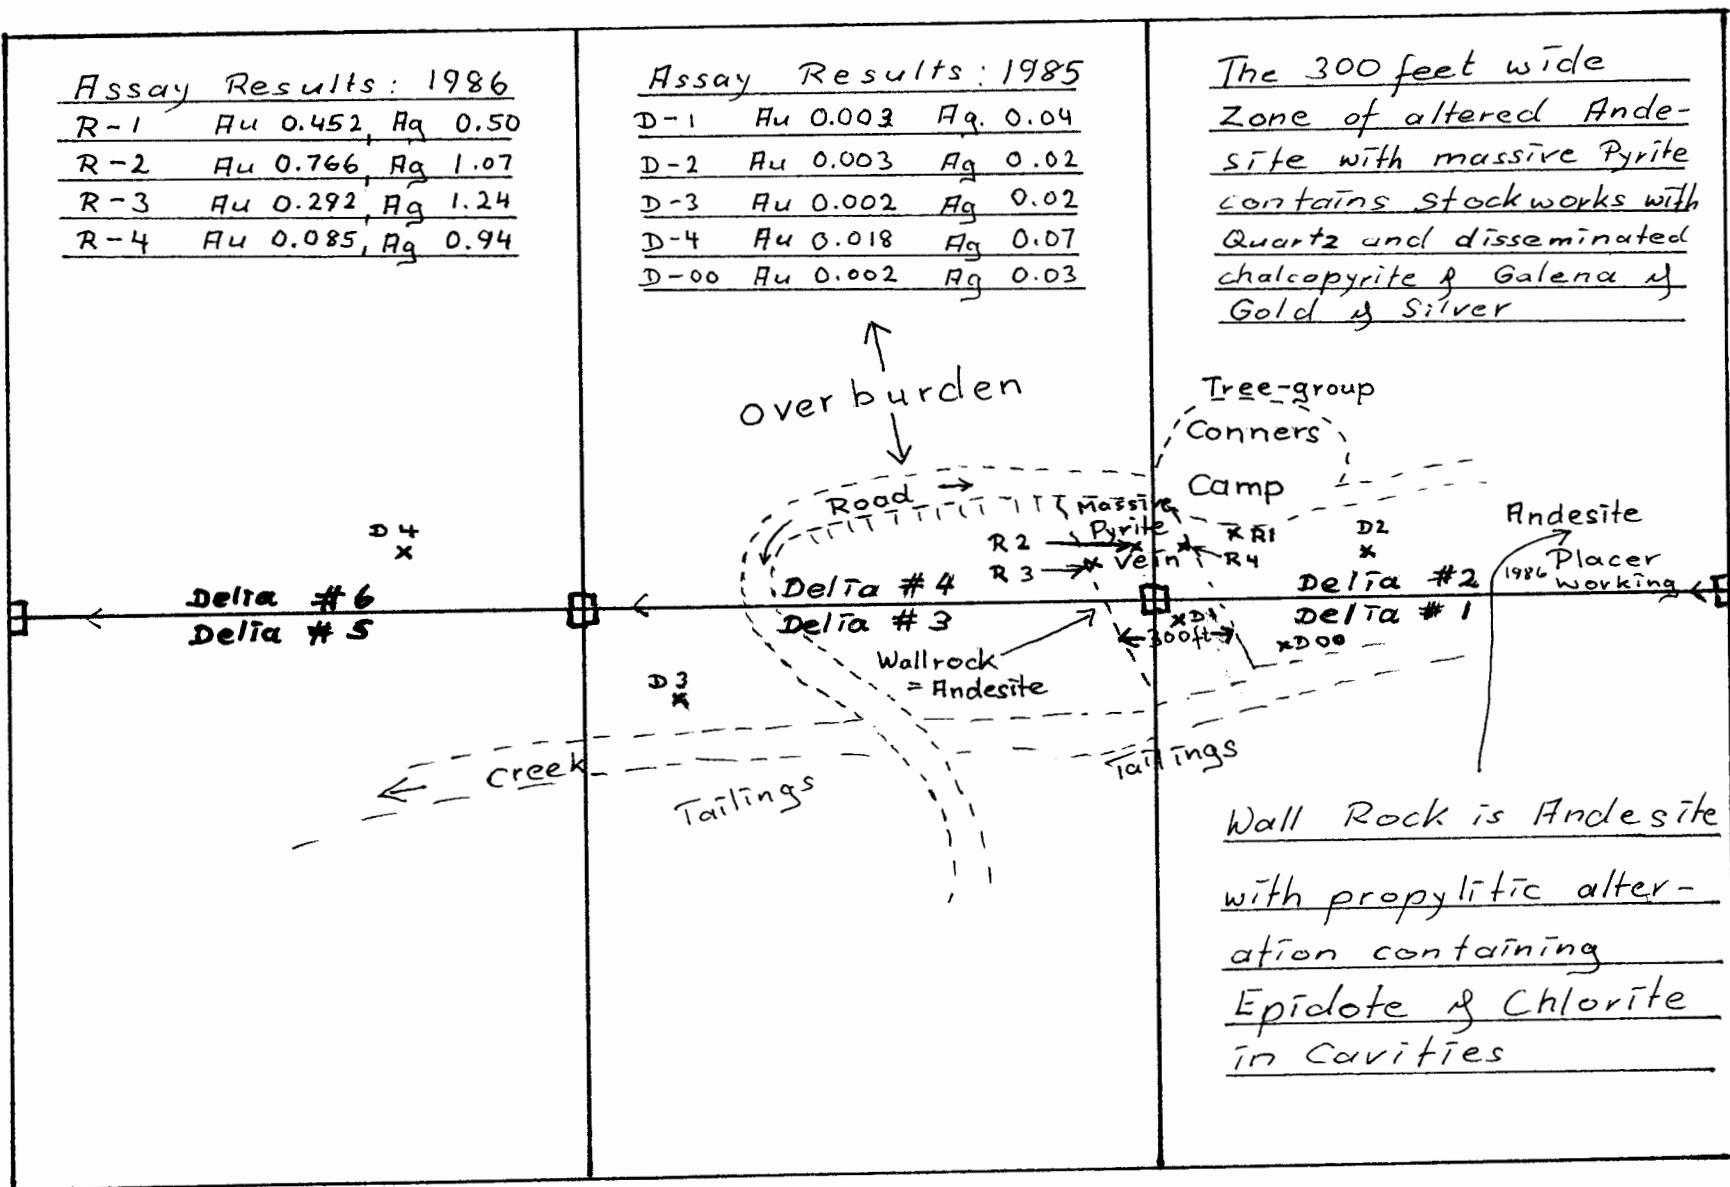 Assay Results: 1986
R-1 Au 0.452, Ag 0.50
R-2 Au 0.766, Ag 1.07
R-3 Au 0.292, Ag 1.24
R-4 Au 0.085, Ag 0.94
Assay Results: 1985
D-1 Au 0.003 Ag. 0.04
D-2 Au 0.003 Ag 0.02
D-3 Au 0.002 Ag 0.02
D-4 Au 0.018 Ag 0.07
D-00 Au 0.002 Ag 0.03
The 300 feet wide
Zone of altered Ande-
site with massive Pyrite
contains Stockworks with
Quartz and disseminated
chalcopyrite & Galena &
Gold & Silver
overburden
Tree-group
Conners
Camp
Road
Massive
Pyrite
Vein
R 2
R 3
R1
R4
D2
Andesite
1986 Placer
working
D4
Delta #6
Delta #5
Delta #4
Delta #3
Delta #2
Delta #1
D1
300ft
D00
Wallrock
= Andesite
D3
Creek
Tailings
Tailings
Wall Rock is Andesite
with propylitic alter-
ation containing
Epidote & Chlorite
in Cavities